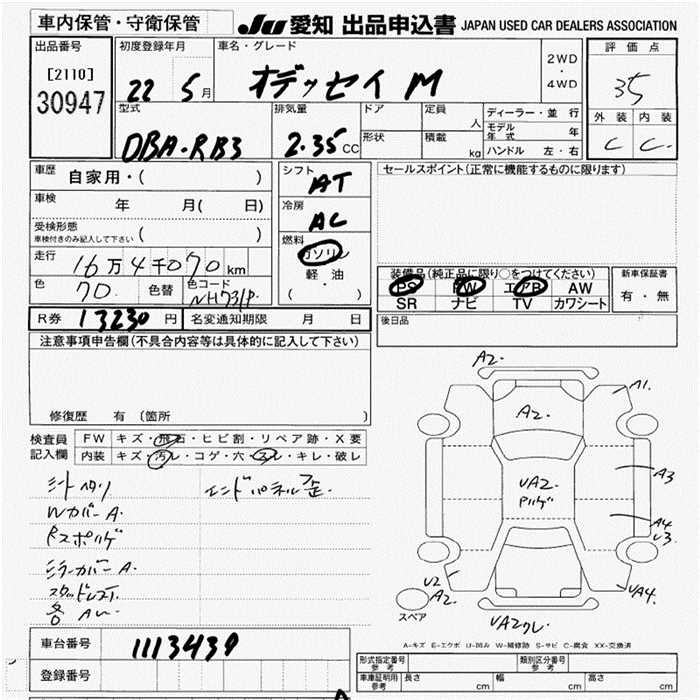 車内保管・守衛保管
JU 愛知 出品申込書 JAPAN USED CAR DEALERS ASSOCIATION
出品番号
[2110]
30947
初度登録年月
22 5月
車名・グレード
オデッセイ M
2WD
・
4WD
評価点
35
外装 内装
C C
型式
DBA-RB3
排気量
2.35 CC
ドア
形状
定員
人
積載
kg
ディーラー・並行
モデル年式 年
ハンドル 左・右
車歴 自家用・( )
車検 年 月( 日)
受検形態
車検付きのみ記入して下さい ( )
走行 16万4千070km
色 70. 色替 色コード NH731P
シフト AT
冷房 AC
燃料
ガソリン
軽油
( ・ )
セールスポイント(正常に機能するものに限ります)
装備品(純正品に限り○をつけてください)
PS PW エアB AW
SR ナビ TV カワシート
新車保証書
有・無
R券 13230円 名変通知期限 月 日
後日品
注意事項申告欄(不具合内容等は具体的に記入して下さい)
修復歴 有 (箇所 )
検査員 FW キズ・飛石・ヒビ割・リペア跡・X要
記入欄 内装 キズ・汚レ・コゲ・穴・スレ・キレ・破レ
シートヘタリ エンドパネル歪.
Wカバー A.
Rスポハゲ
ミラーカバー A.
各
A2.
A1.
A2.
A3
UA2
Pハゲ
A4
U3.
U2
A2.
UA4.
スペア
UA2クレ.
A-キズ E-エクボ U-凹み W-補修跡 S-サビ C-腐食 XX-交換済
車台番号 1113439
登録番号
形式指定番号 参考 類別区分番号 参考
車庫証明用 参考 長さ cm 幅 cm 高さ cm